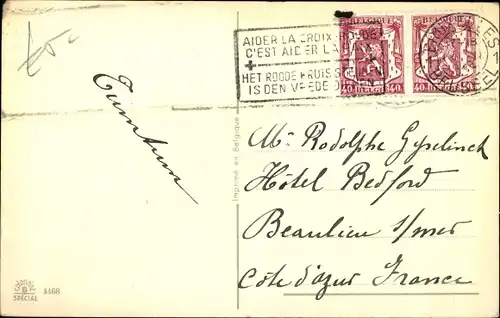 AIDER LA CROIX-ROUGE
C'EST AIDER LA
+
HET ROODE KRUIS
IS DEN VREDE
BELGIQUE BELGIE
40 40
BELGIQUE BELGIE
40 40
Imprimé en Belgique
Mr Rodolphe Gyselinck
Hôtel Bedford
Beaulieu s/mer
Côte d'azur France
SPÉCIAL
4468